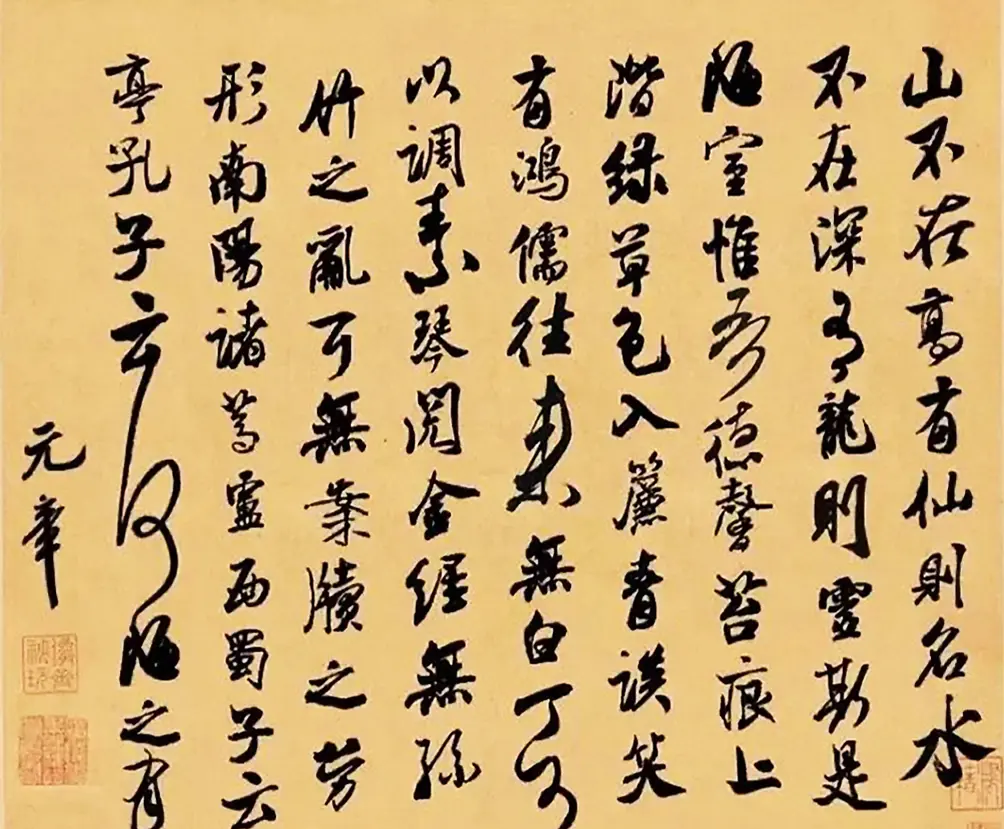 山不在高有仙則名水
不在深有龍則靈斯是
陋室惟吾德馨苔痕上
階緑草色入簾青談笑
有鴻儒往来無白丁可
以調素琴閲金經無絲
竹之亂耳無案牘之勞
形南陽諸葛廬西蜀子云
亭孔子云何陋之有
元章